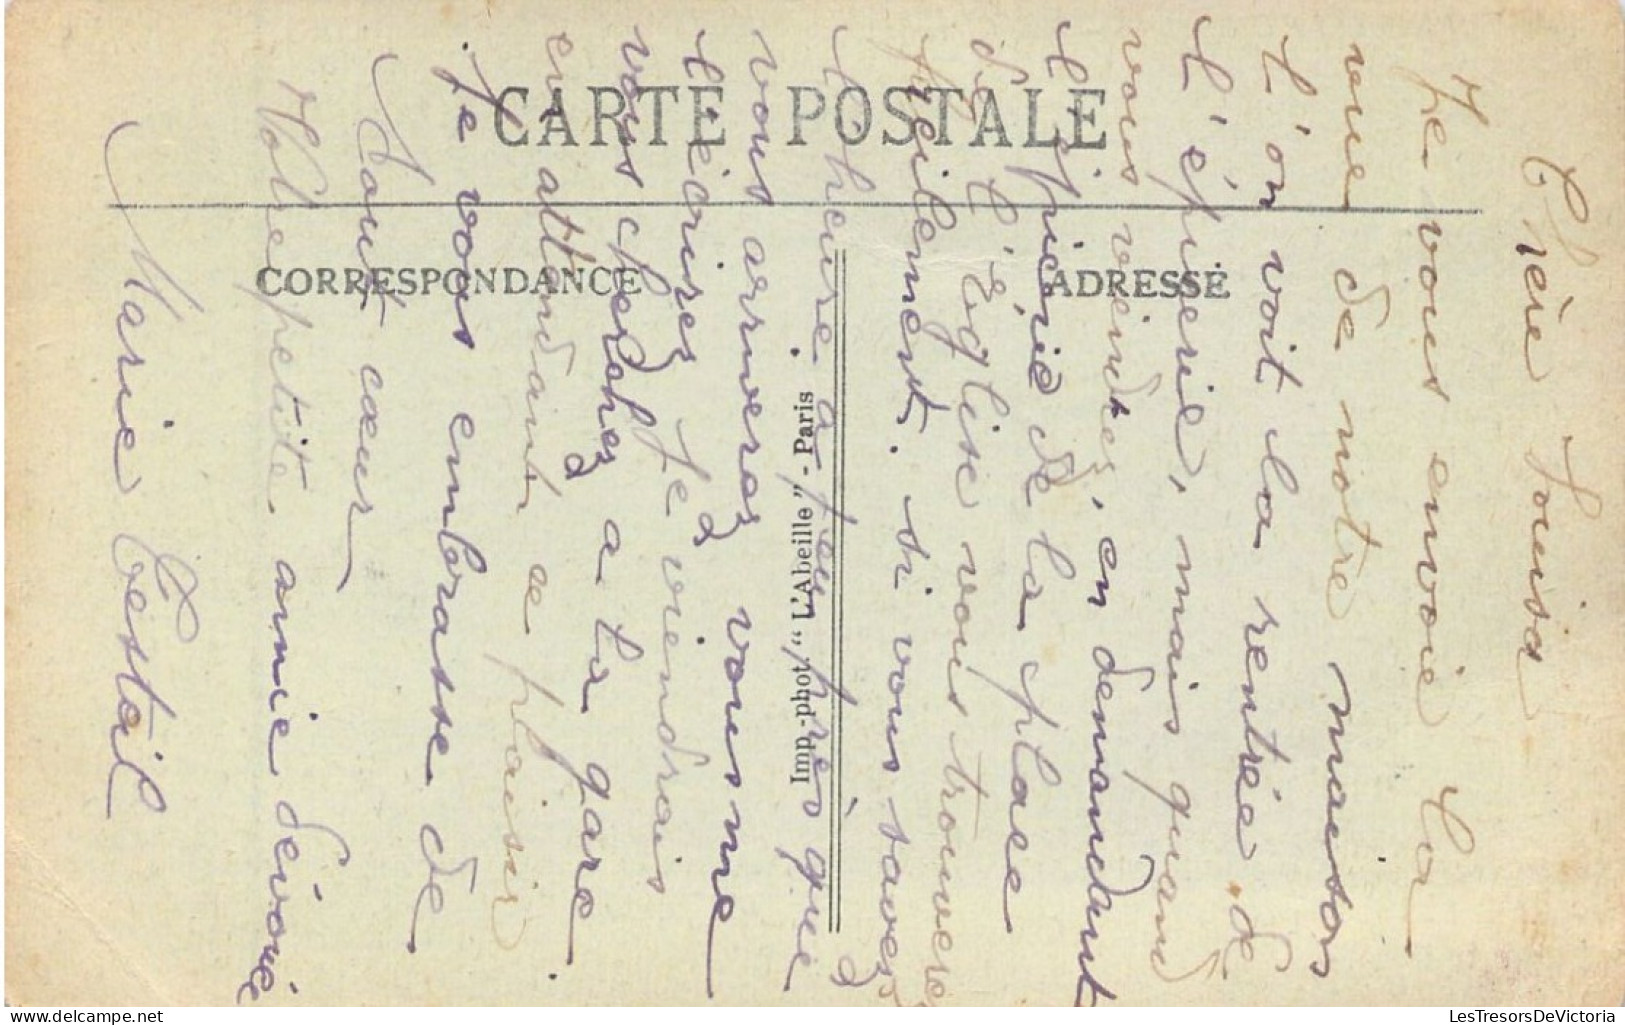 CARTE POSTALE
CORRESPONDANCE
ADRESSE
Imp.-phot. "L'Abeille" - Paris
Chère Louisa
Je vous envoie la
vue de notre maison
l'on voit la rentrée de
l'épiserie, mais quand
vous viendrez, en demandant
l'épicérie de la place
de l'église vous trouverez
facilement. si vous savez
l'heure a peu près que
vous arriverez vous me
l'écrirez je viendrais
vous cherchez a la gare
en attendant ce plaisir
Je vous embrasse de
tout cœur
Votre petite amie dévouée
Marie Testail
delcampe.net
LesTresorsDeVictoria